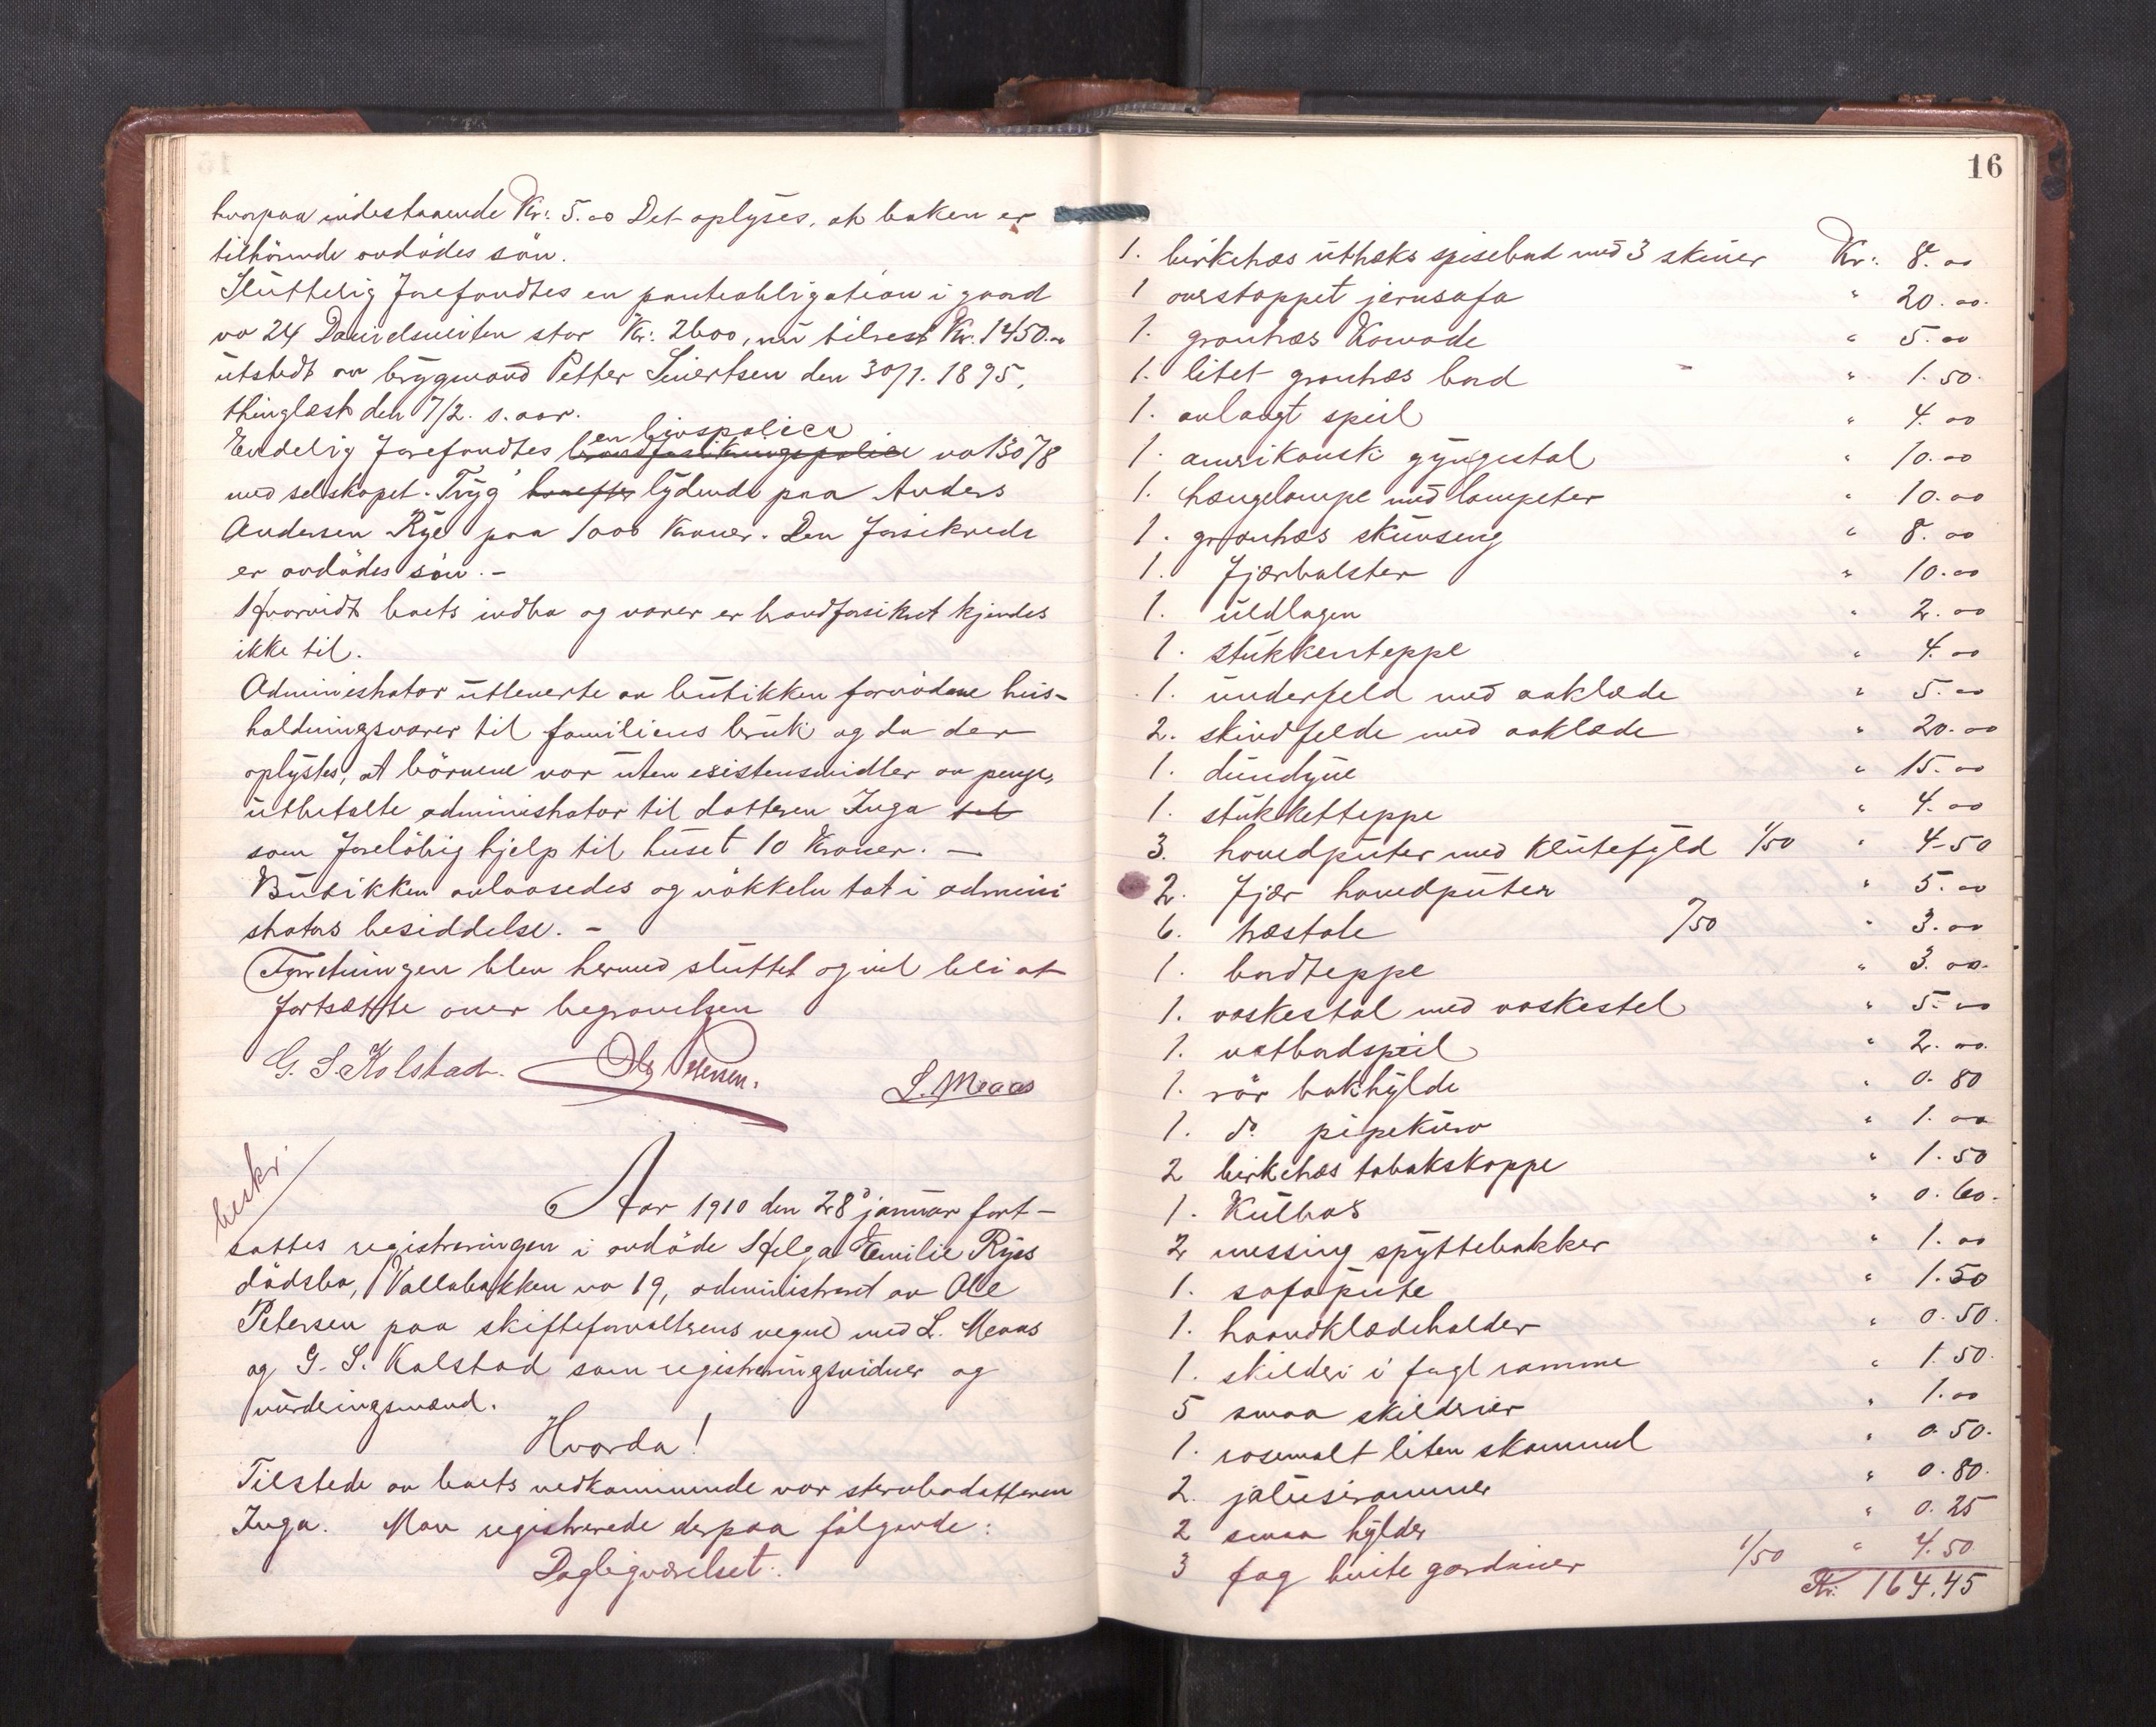 hvorpaa indestaaende Kr: 5.00 Det oplyses, at boken er
tilhörende avdödes sön.
Sluttelig forefandtes en panteobligation i gaard
no 24 Danielsveiten stor Kr: 2600, nu tilrest Kr. 1450.00
utstedt av brygmand Petter Sivertsen den 30/1. 1895,
thinglæst den 7/2. s. aar.
en livspolice
Endelig forefandtes brandforsikringspolice no 13078
med selskapet "Tryg" lydende paa Anders
Andersen Rye paa 1000 Kroner. Den forsikrede
er avdödes sön. -
Hvorvidt boets indbo og varer er brandforsikret kjendes
ikke til.
Administrator utleverte av butikken fornödne hus-
holdningsvarer til familiens bruk og da der
oplystes, at börnene var uten existensmidler av penge,
utbetalte administrator til datteren Inga til
som foreløbig hjelp til huset 10 Kroner. -
Butikken avlaasedes og nökkeln tat i admini
strators besiddelse. -
Forretningen blev hermed sluttet og vil bli at
fortsætte over begravelsen
G. S. Kolstad. Ole Petersen. L. Meaas
beskr.
Aar 1910 den 28de januar fort-
sattes registreringen i avdöde Helga Emilie Ryes
dödsbo, Vollabakken no 19, administrert av Ole
Petersen paa skifteforvalterens vegne med L. Meaas
og G. S. Kolstad som registreringsvidner og
vurderingsmænd.
Hvorda!
Tilstede av boets vedkommende var stervbodatteren
Inga. Man registrerede derpaa følgende:
Dagligværelset:
16
1. birketræs uttræks spisebord med 3 skiver Kr: 8.00
1 overstoppet jernsofa " 20.00.
1. grantræs Komode " 5.00
1. litet grantræs bord " 1.50.
1. avlangt speil " 4.00
1. amerikansk gyngestol " 10.00
1. hængelampe med lampeter " 10.00
1. grantræs skuvseng " 8.00
1. Fjærbolster " 10.00
1. uldlagen " 2.00
1. stukkenteppe " 4.00
1. underfeld med aaklæde " 5.00
2. skindfelde med aaklæde " 20.00
1. dundyne " 15.00
1. stukketteppe " 4.00
3. hovedputer med klutefyld 1/50 " 4-50
2. Fjær hovedputer " 5.00
6. træstole "/50 " 3.00
1. bordteppe " 3.00.
1. vaskestol med vaskestel " 5.00
1. natbordspeil " 2.00.
1. rör bokhylde " 0.80
1. do. pipekurv " 1.00
2 birketræs tobakskoppe " 1.50
1. Kulbas " 0.60.
2 messing spyttebakker " 1.00
1. sofapute " 1.50
1. haandklædeholder " 0.50.
1. skilderi i fugl ramme " 1.50.
5 smaa skilderier " 1.00
1. rosemalt liten skammel " 0.50.
2. jalusirammer " 0.80.
2 smaa hylder " 0.25
3 fag hvite gardiner 1/50 " 4.50
Kr. 164.45